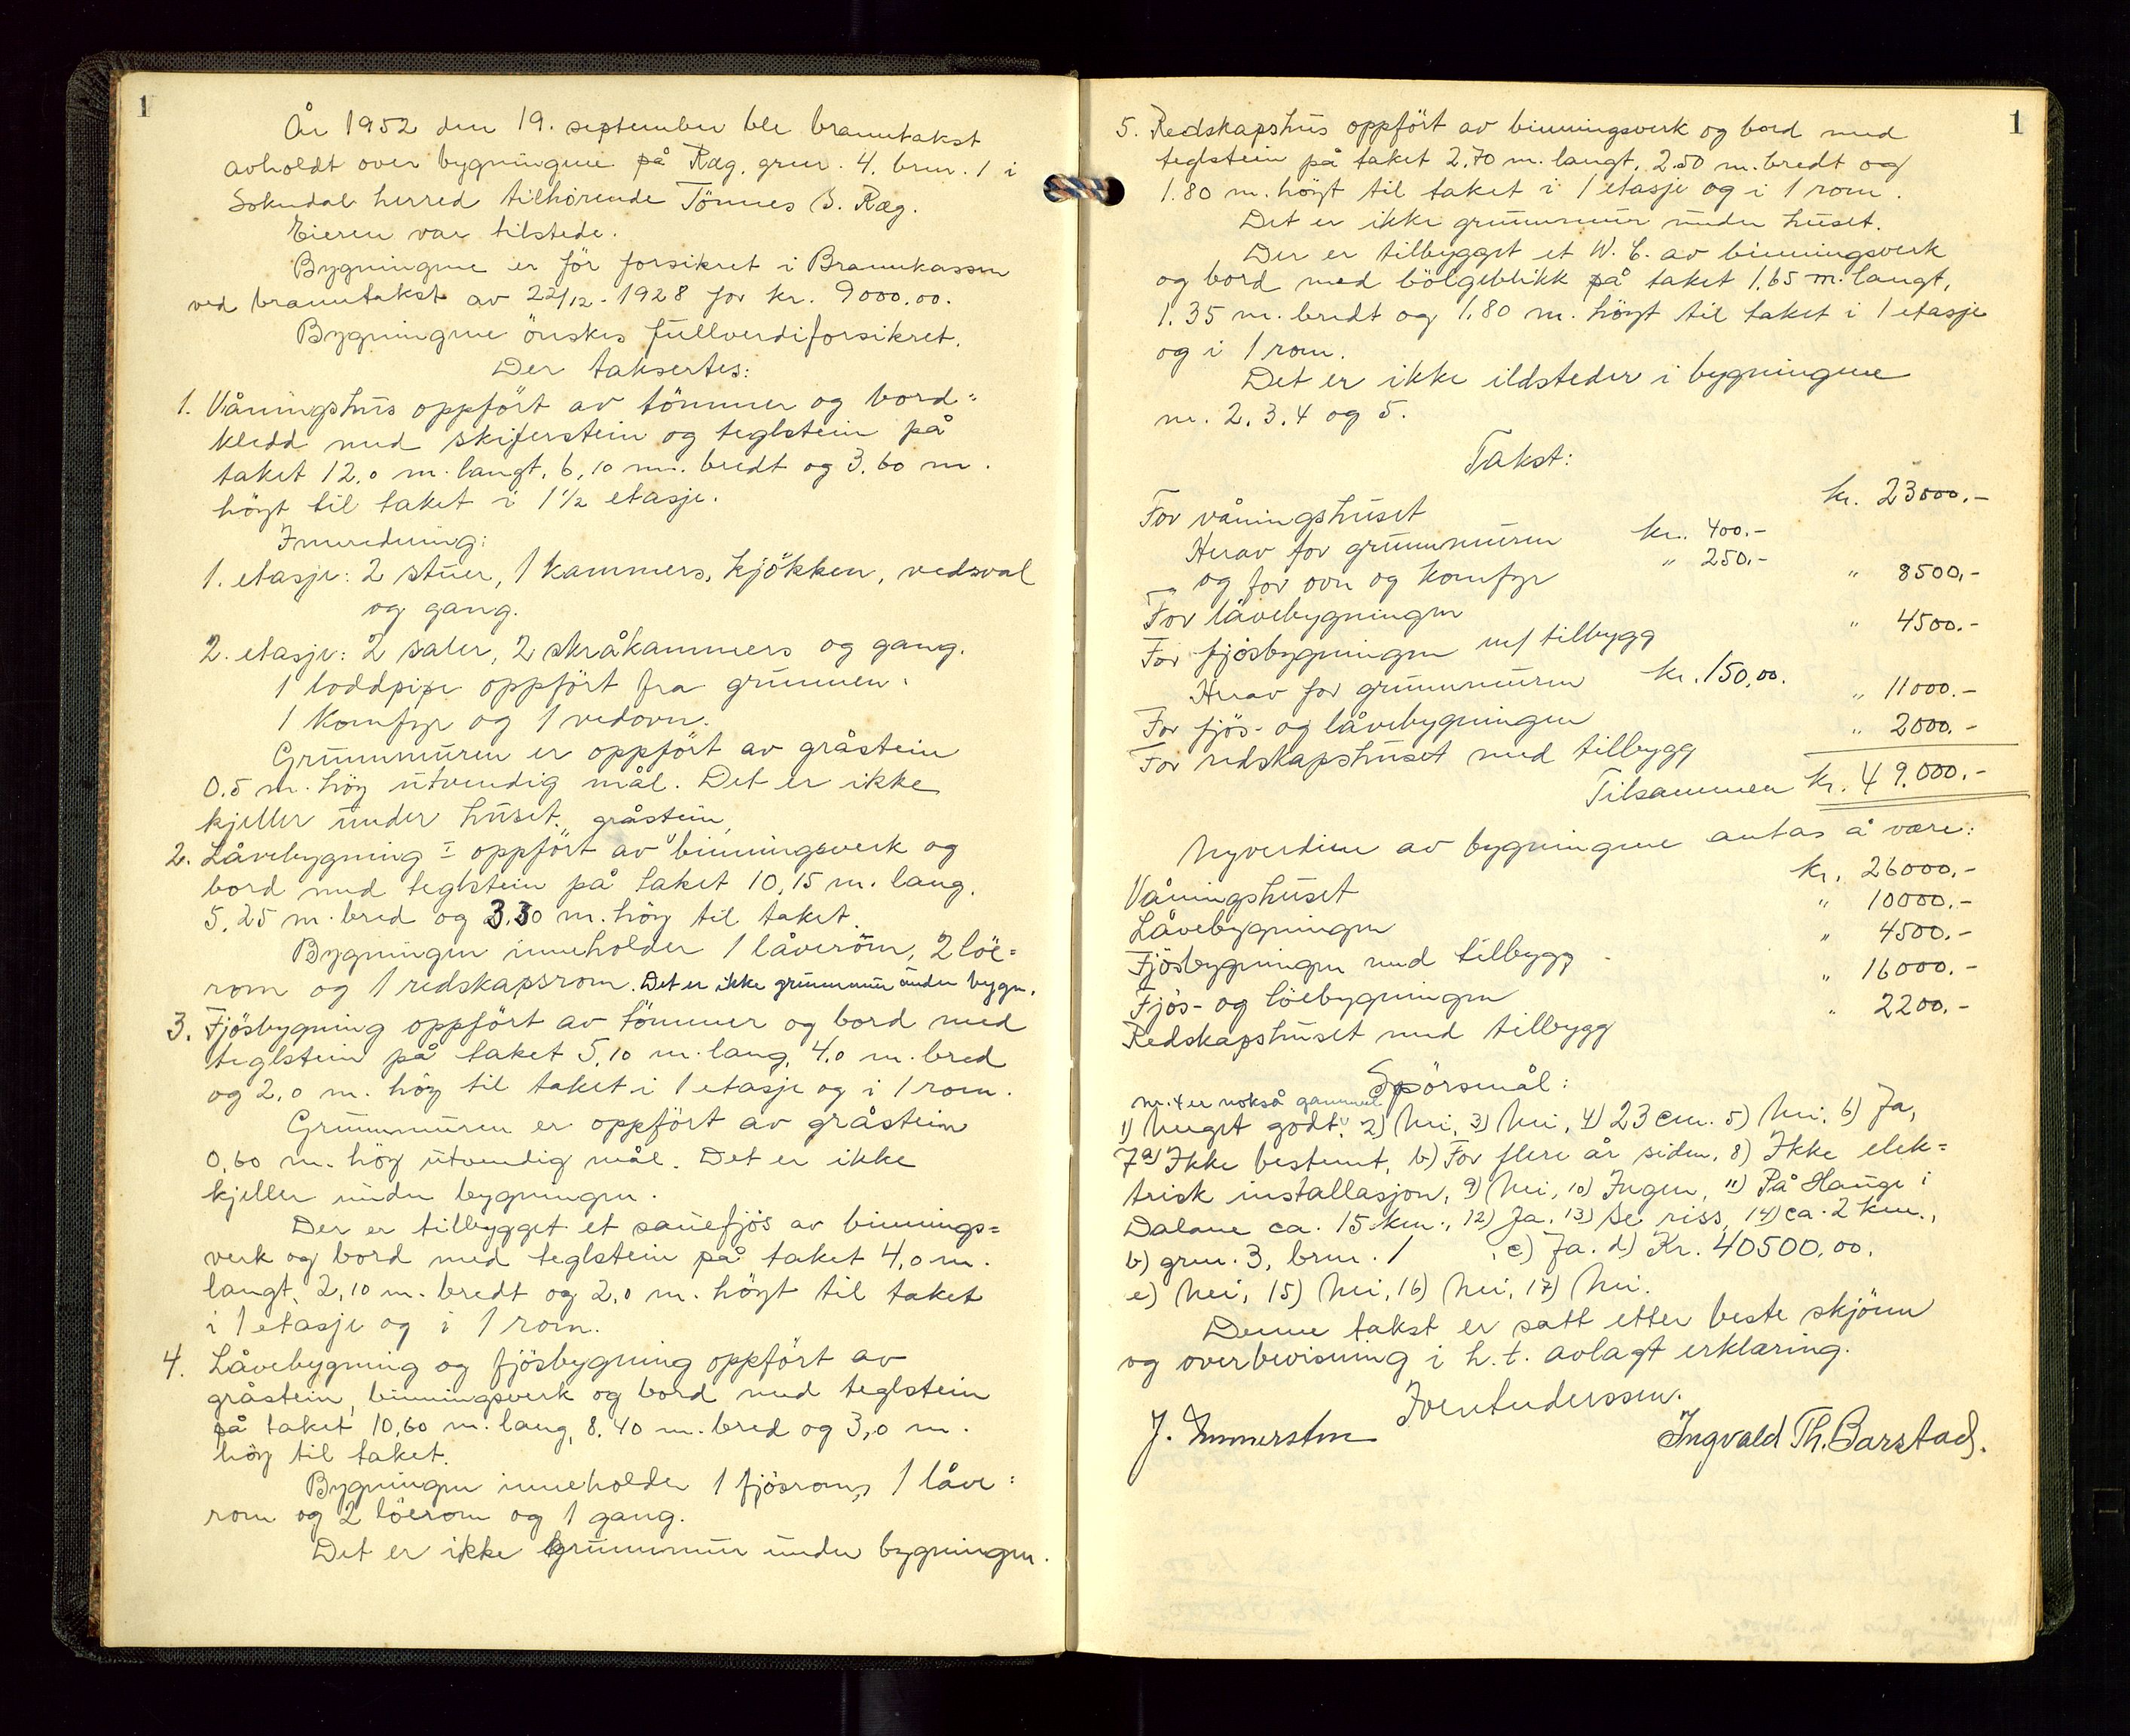 1
År 1952 den 19. september ble branntakst
avholdt over bygningene på Ræg, gnr. 4. bnr. 1 i
Sokndal herred tilhørende Tönnes S. Ræg.
Eieren var tilstede.
Bygningene er för forsikret i Brannkassen
ved branntakst av 22/12-1928 for kr. 9000.00.
Bygningene önskes fullverdiforsikret.
Der taksertes:
1. Våningshus oppfört av tömmer og bord=
kledd med skiferstein og teglstein på
taket 12,0 m. langt, 6,10 m. bredt og 3,60 m.
höyt til taket i 1½ etasje.
Innredning:
1. etasje: 2 stuer, 1 kammers, kjökken, vedsval
og gang.
2. etasje: 2 saler, 2 skråkammers og gang.
1 loddpipe oppfört fra grunnen.
1 komfyr og 1 vedovn.
Grunnmuren er oppfört av gråstein
0.5 m. höy utvendig mål. Det er ikke
kjeller under huset.
gråstein,
2. Låvebygning I oppfört av binningsverk og
bord med teglstein på taket 10,15 m. lang.
5,25 m. bred og 3,30 m. höy til taket.
Bygningen inneholder 1 låverom, 2 löe=
rom og 1 redskapsrom. Det er ikke grunnmur under bygn.
3. Fjösbygning oppfört av tömmer og bord med
teglstein på taket 5,10 m. lang, 4,0 m. bred
og 2,0 m. höy til taket i 1 etasje og i 1 rom.
Grunnmuren er oppfört av gråstein
0,60 m. höy utvendig mål. Det er ikke
kjeller under bygningen.
Der er tilbygget et sauefjös av binnings=
verk og bord med teglstein på taket 4,0 m.
langt, 2,10 m. bredt og 2,0 m. höyt til taket
i 1 etasje og i 1 rom.
4. Låvebygning og fjösbygning oppfört av
gråstein, binningsverk og bord med teglstein
på taket 10,60 m. lang, 8,40 m. bred og 3,0 m.
höy til taket.
Bygningen inneholder 1 fjösrom, 1 låve=
rom og 2 löerom og 1 gang.
Det er ikke grunnmur under bygningen.
1
5. Redskapshus oppfört av binningsverk og bord med
teglstein på taket 2,70 m. langt, 2,50 m. bredt og
1.80 m. höyt til taket i 1 etasje og i 1 rom.
Det er ikke grunnmur under huset.
Der er tilbygget et W.C. av binningsverk
og bord med bölgeblikk på taket 1,65 m. langt,
1.35 m. bredt og 1,80 m. höyt til taket i 1 etasje
og i 1 rom.
Det er ikke ildsteder i bygningene
nr. 2. 3. 4 og 5.
Takst:
For våningshuset kr. 23000.-
Herav for grunnmuren kr. 400.-
" og for ovn og komfyr " 250.-
For låvebygningen " 8500.-
For fjösbygningen m/ tilbygg " 4500.-
Herav for grunnmuren kr. 150,00.
For fjös- og låvebygningen " 11000.-
For redskapshuset med tilbygg " 2000.-
Tilsammen kr. 49.000.-
Nyverdien av bygningene antas å være:
Våningshuset kr. 26000.-
Låvebygningen " 10000.-
Fjösbygningen med tilbygg " 4500.-
Fjös- og löebygningen " 16000.-
Redskapshuset med tilbygg " 2200.-
Spörsmål:
nr. 4 er nokså gammel
1) Meget godt, 2) Nei, 3) Nei, 4) 23 cm. 5) Nei, 6) Ja,
7a) Ikke bestemt, b) For flere år siden, 8) Ikke elek=
trisk installasjon, 9) Nei, 10) Ingen, 11) På Hauge i
Dalane ca. 15 km., 12) Ja, 13) Se riss, 14) ca. 2 km.,
b) gnr. 3, bnr. 1, c) Ja. d) Kr. 40500.00.
e) Nei, 15) Nei, 16) Nei, 17) Nei.
Denne takst er satt etter beste skjönn
og overbevisning i h.t. avlagt erklæring.
Iver Anderssen.
J. Emmersten Ingvald Th. Barstad.